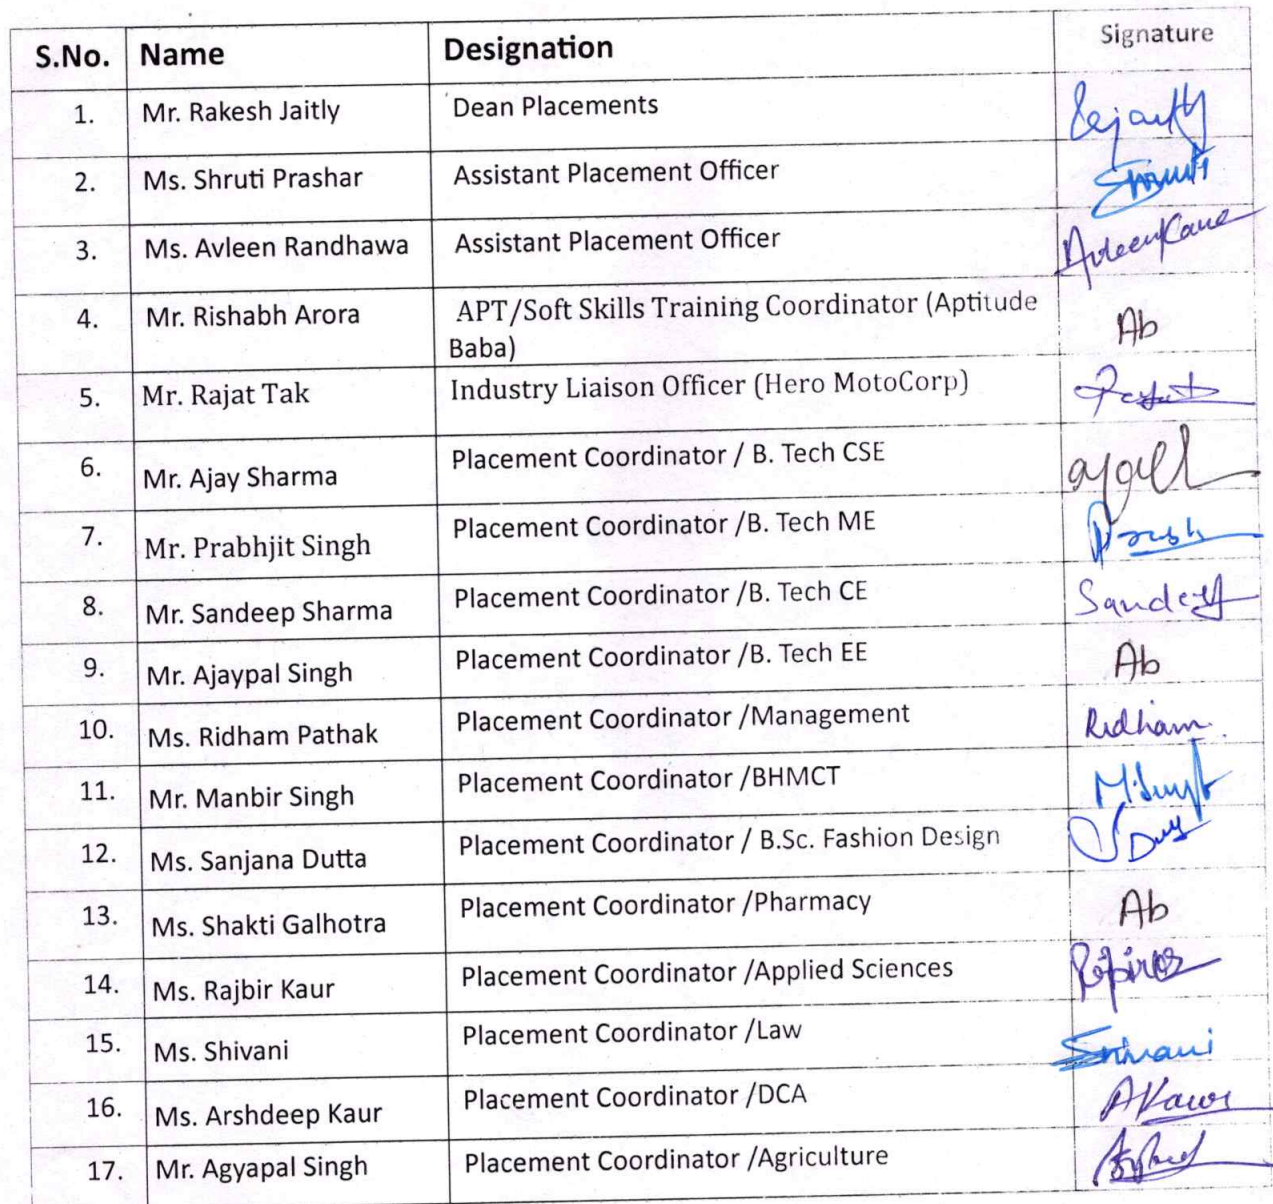 S.No. Name Designation Signature
1. Mr. Rakesh Jaitly Dean Placements
2. Ms. Shruti Prashar Assistant Placement Officer Shruti
3. Ms. Avleen Randhawa Assistant Placement Officer Avleen Kaur
4. Mr. Rishabh Arora APT/Soft Skills Training Coordinator (Aptitude
Baba) Ab
5. Mr. Rajat Tak Industry Liaison Officer (Hero MotoCorp)
6. Mr. Ajay Sharma Placement Coordinator / B. Tech CSE
7. Mr. Prabhjit Singh Placement Coordinator /B. Tech ME
8. Mr. Sandeep Sharma Placement Coordinator /B. Tech CE Sandeep
9. Mr. Ajaypal Singh Placement Coordinator /B. Tech EE Ab
10. Ms. Ridham Pathak Placement Coordinator /Management Ridham
11. Mr. Manbir Singh Placement Coordinator /BHMCT
12. Ms. Sanjana Dutta Placement Coordinator / B.Sc. Fashion Design
13. Ms. Shakti Galhotra Placement Coordinator /Pharmacy Ab
14. Ms. Rajbir Kaur Placement Coordinator /Applied Sciences
15. Ms. Shivani Placement Coordinator /Law Shivani
16. Ms. Arshdeep Kaur Placement Coordinator /DCA AKaur
17. Mr. Agyapal Singh Placement Coordinator /Agriculture